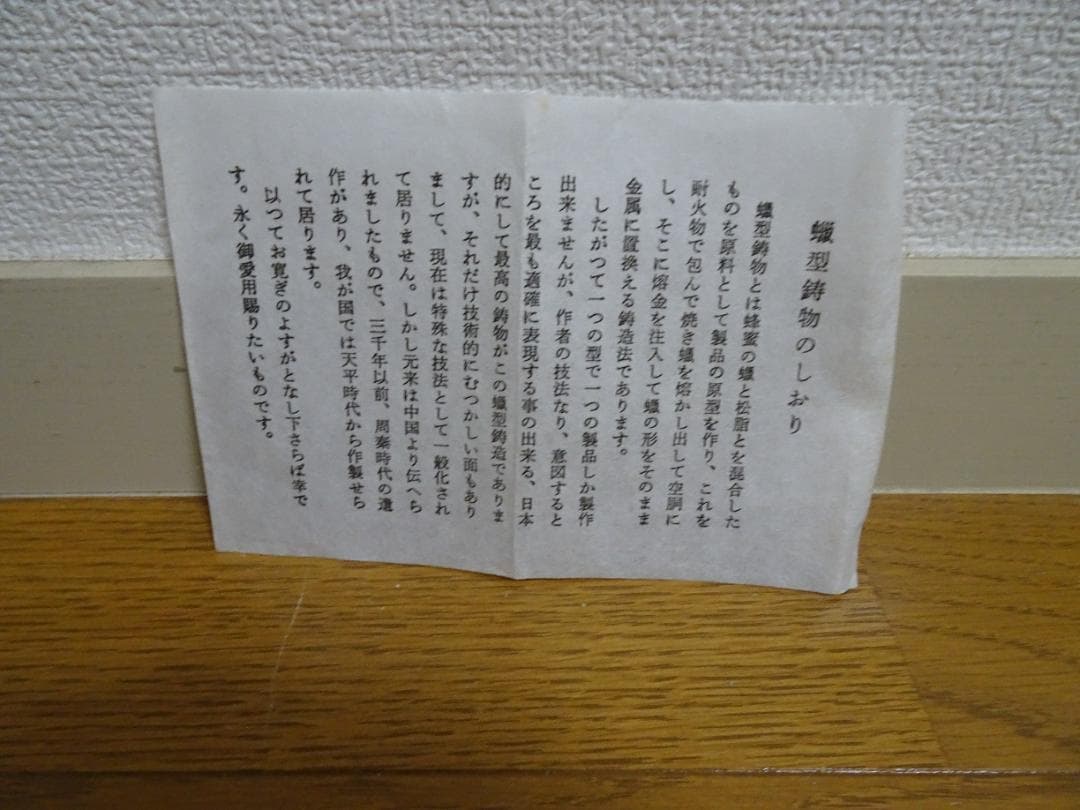 蠟型鋳物のしおり
蠟型鋳物とは蜂蜜の蠟と松脂とを混合した
ものを原料として製品の原型を作り、これを
耐火物で包んで焼き蠟を熔かし出して空洞に
し、そこに熔金を注入して蠟の形をそのまま
金属に置換える鋳造法であります。
したがつて一つの型で一つの製品しか製作
出来ませんが、作者の技法なり、意図すると
ころを最も適確に表現する事の出来る、日本
的にして最高の鋳物がこの蠟型鋳造でありま
すが、それだけ技術的にむつかしい面もあり
まして、現在は特殊な技法として一般化され
て居りません。しかし元来は中国より伝へら
れましたもので、三千年以前、周秦時代の遺
作があり、我が国では天平時代から作製せら
れて居ります。
以つてお寛ぎのよすがとなし下さらば幸で
す。永く御愛用賜りたいものです。